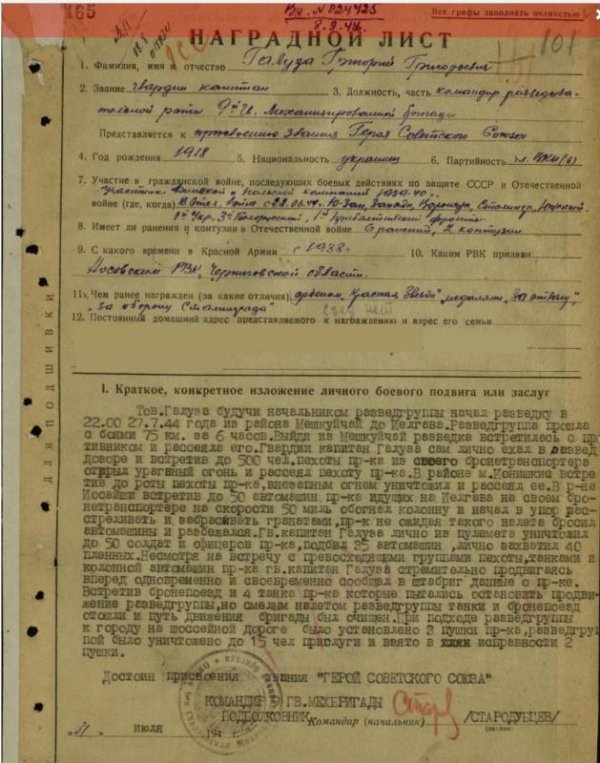 Пр. N 024425
Все графы заполнять полностью
Н65
8.9.44
101
НАГРАДНОЙ ЛИСТ
1. Фамилия, имя и отчество Галуза Григорий Григорьевич
2. Звание гвардии капитан 3. Должность, часть командир разведыва-
тельной роты 9й Гв. Механизированной бригады
Представляется к присвоению звания Героя Советского Союза
4. Год рождения 1918 5. Национальность украинец 6. Партийность чл. ВКП(б)
7. Участие в гражданской войне, последующих боевых действиях по защите СССР и Отечественной
Участник Финской и кампаний 1939-40
войне (где, когда) В Отеч. войне с 22.06.41. Ю-Зап, Западн, Воронеж, Сталингр, Южный.
Укр, 3й Белорусский, 1й Прибалтийский фронты
8. Имеет ли ранения и контузии в Отечественной войне 6 ранений, 2 контузии
9. С какого времени в Красной Армии с 1938г 10. Каким РВК призван
Носовским РВК, Черниговской области.
11. Чем ранее награжден (за какие отличия) орденом "Красная Звезда" медалями "За отвагу",
"За оборону Сталинграда"
12. Постоянный домашний адрес представляемого к награждению и адрес его семьи
ДЛЯ ПОДШИВКИ
I. Краткое, конкретное изложение личного боевого подвига или заслуг
Тов.Галуза будучи начальником разведгруппы начал разведку в
22.00 27.7.44 года из района Мешкуйчай до Иелгава.Разведгруппа прошла
с боями 75 км. за 6 часов.Выйдя из Мешкуйчай разведка встретилась с про
тивником и рассеяла его.Гвардии капитан Галуза сам лично ехал в развед
дозоре и встретив до 500 чел.пехоты пр-ка из своего бронетранспортера
открыл ураганый огонь и рассеял пехоту пр-ка.В районе м.Ионишки встре
тив до роты пехоты пр-ка,внезапным огнем уничтожил и рассеял ее.В р-не
Иосайши встретив до 50 автомашин пр-ка идущих на Иелгава на своем бро-
нетранспортере на скорости 50 миль обогнал колонну и начал в упор рас-
стреливать и забрасивать гранатами,пр-к не ожидая такого налета бросил
автомашины и разбежался.Гв.капитан Галуза лично из пулемета уничтожил
до 50 солдат и офицеров пр-ка,подбил 35 автомашин ,лично захватил 40
пленных.Несмотря на встречу с превосходящими группами пехоты,танками и
колонной автомашин пр-ка гв.капитан Галуза стремительно продвигаясь
вперед одновременно и своевременно сообщал в штабриг данные о пр-ке.
Встретив бронепоезд и 4 танка пр-ка которые пытались остановить продви-
жение разведгруппы,но смелым налетом разведгруппы танки и бронепоезд
отошли и путь движения бригады был очищен.При подходе разведгруппы
к городу на шоссейной дороге было установлено 3 пушки пр-ка,разведгруп
пой было уничтожено до 15 чел прислуги и взято в исправности 2
пушки.
Достоин присвоения звания "ГЕРОЙ СОВЕТСКОГО СОЮЗА"
КОМАНДИР 9 ГВ.МЕХБРИГАДЫ
ПОДПОЛКОВНИК Командир (начальник) /СТАРОДУБЦЕВ/
"31" июля 194 г.